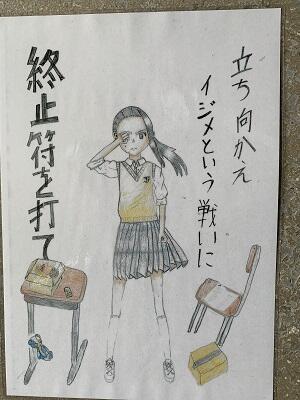 立ち向かえ
イジメという戦いに
終止符を打て